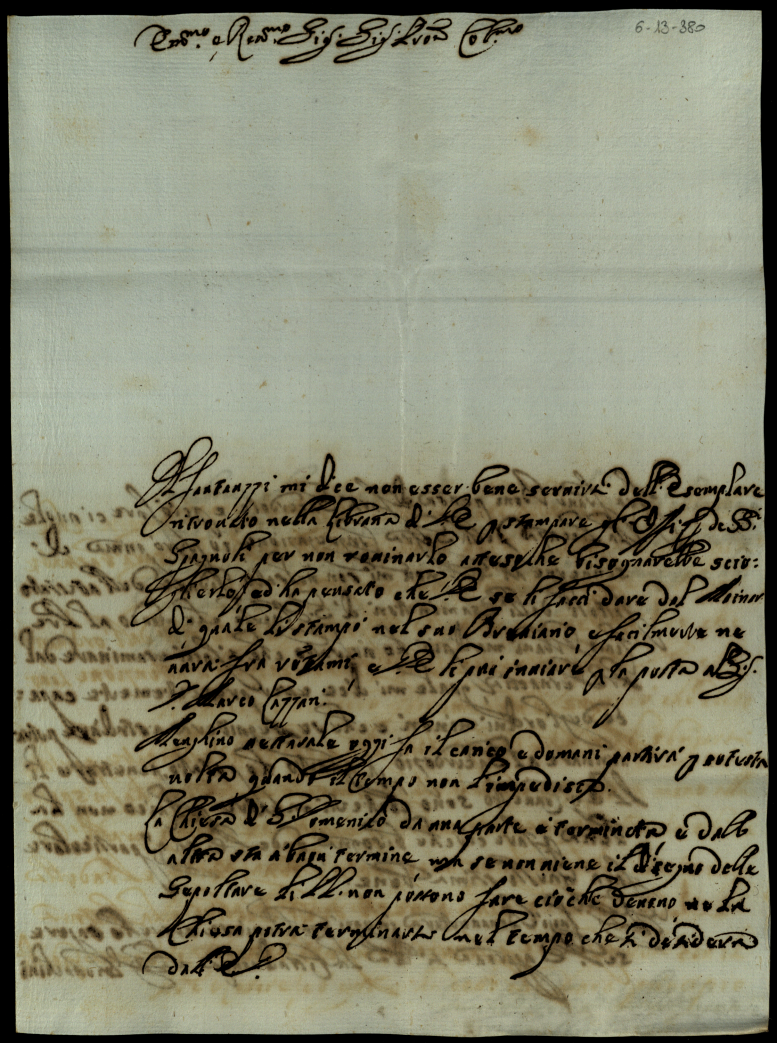 6-13-380
Em.mo e Rev.mo Sig. Sig. Pron Col.mo
mi dice non esser bene servirsi dell'Esemplare
ritrovato nella libraria di VE p stampare de SS.
Spagnoli per non rovinarlo attesoche bisognarebbe scio:
glierlo, ed ha pensato che VE se li facci dare dal
di quale li stampò nel suo Breviario e facilmente ne
havrà fra volumi, e VE li può inviare p la posta al Sig.
Marco
oggi fa il carico e domani partirà p
volta quando il tempo non l'impedisca.
La Chiesa di S. Domenico da una parte è terminata e dall'
altra sta a bon termine ma se non viene il disegno delle
Sepolture li PP. non possono fare ciò che devono ne la
Chiesa potrà terminarsi nel tempo che si desidera
da VE.